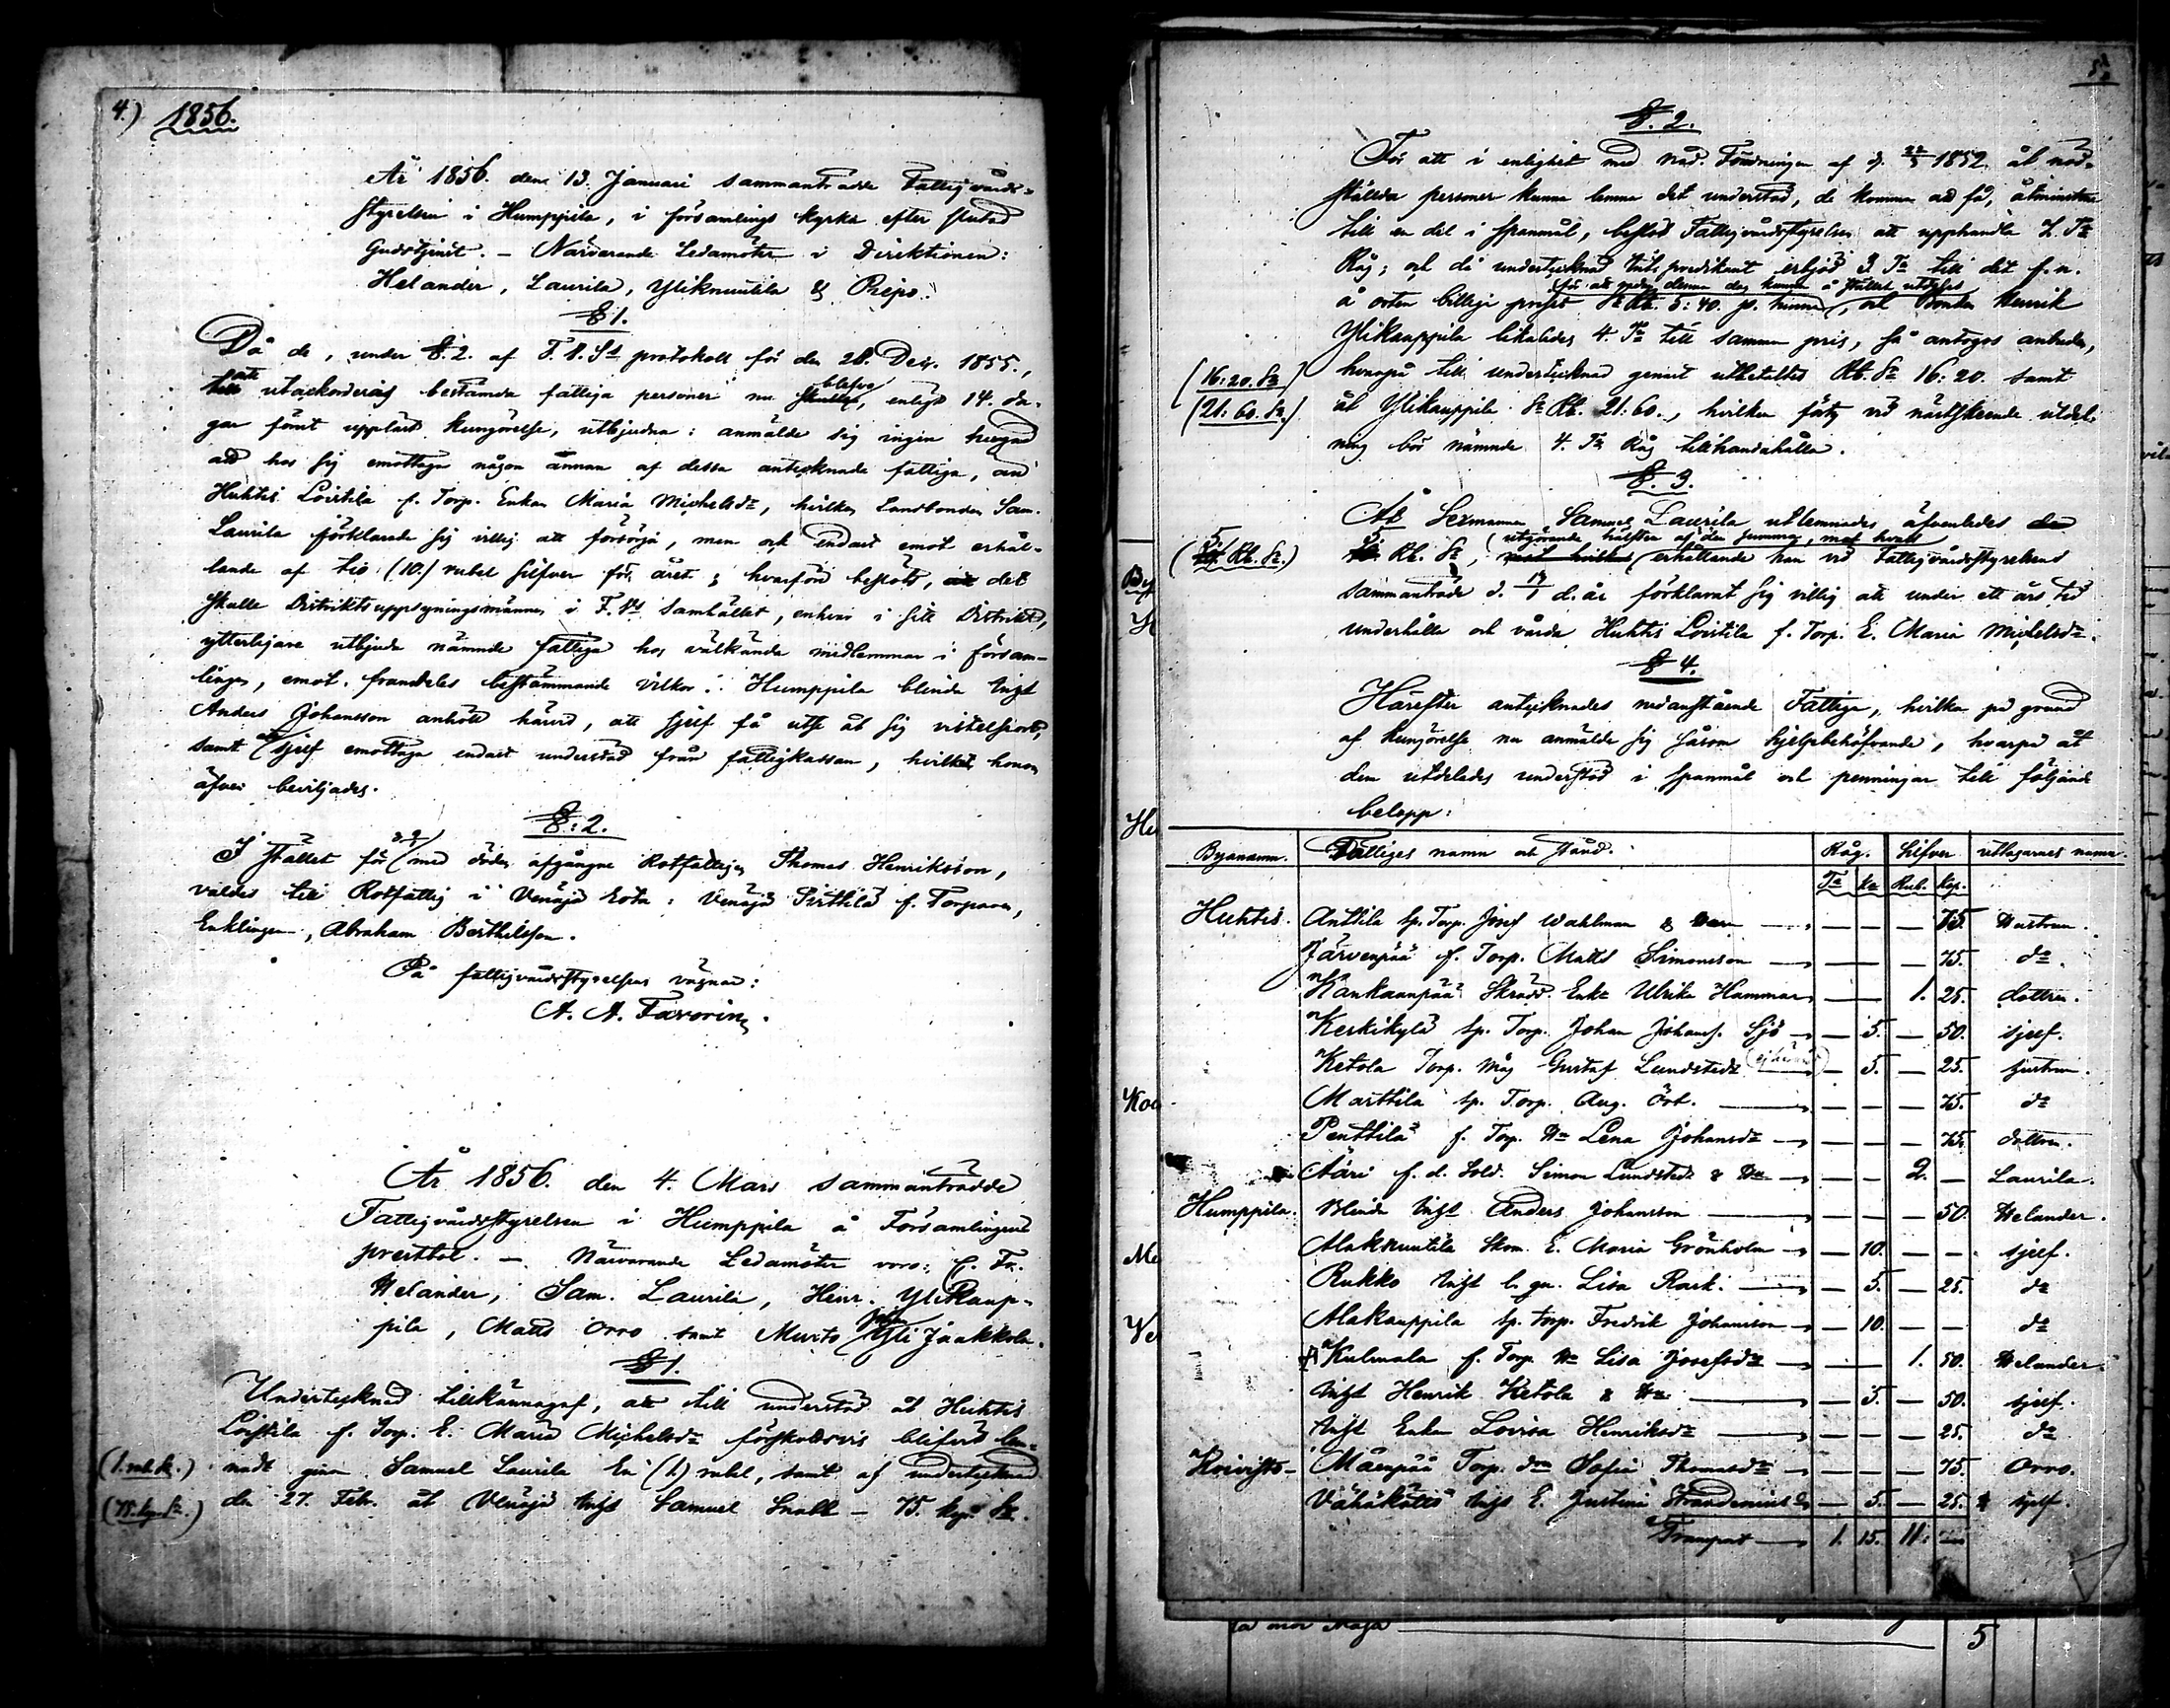 4.) 1856.
År 1856. den 13. Januari sammanträdde Fattigvårds-
styrelsen i Humppila, i församlings kyrka efter slutad
Gudstjenst. – Närvarande Ledamöter i Direktionen:
Helander, Laurila, Yliknuutila & Repo.
§ 1.
Då de, under §. 2. af F.V.Sts protokoll för den 28. Dec. 1855.,
till utackordering bestämda fattiga personer nu blefvo, enligt 14. da-
gar förut uppläst kungörelse, utbjudna: anmälde sig ingen hugad
att hos sig emottaga någon annan af dessa antecknade fattiga, än
Huhtis Loistila f. Torp. Enkan Maria Michelsdr, hvilken Landbonden Sam.
Laurila förklarade sig villig att försörja, men ock endast emot erhål-
lande af tio (10.) rubel silfver för året; hvarföre beslöts, att det
skulle Distriktsuppsyningsmännen i F.Vs samhället, enhvar i sitt Distrikt,
ytterligare utbjuda nämnde fattiga hos välkända medlemmar i försam-
lingen, emot framdeles bestämmande vilkor. Humppila blinda Inhst
Anders Johansson anhöll härvid, att sjelf få utse åt sig vistelseort,
samt att sjelf emottaga endast understöd från fattigkassan, hvilket honom
äfven beviljades.
§: 2.
I stället för den med döden afgångne Rotfattigen Thomas Henriksson,
valdes till Rotfattig i Venäjä Rota: Venäjä Perttilä f. Torparen,
Enklingen, Abraham Berthilsson.
På fattigvårdsstyrelsens vägnar:
A. A. Favorin.
År 1856. den 4. Mars sammanträdde
Fattigvårdsstyrelsen i Humppila å Församlingens
prestbol. – Närvarande Ledamöter voro: C. Fr.
Helander, Sam. Laurila, Henr. Ylikaup-
pila, Matts Orro samt Murto Johan Yli Jaakkola.
§ 1.
Undertecknad tillkännagaf, att till understöd åt Huhtis
Loistila f. Torp. E. Maria Michelsdr förskottsvis blifvit lem-
(1. rub. Sr.) nadt genom Samuel Laurila En (1) rubel, samt af undertecknad
(75. kop. Sr.) den 27. Febr. åt Venäjä Inhst Samuel Snäll – 75. kop. Sr.
§. 2.
För att i enlighet med Nåd. Förordningen af d. 22/3 1852 åt nöd-
ställda personer kunna lemna det understöd, de komma att få, åtminstone
till en del i spanmål, beslöt Fattigvårdsstyrelsen att upphandla 7. Tr
Råg; och då undertecknad erbjöd 3. Tr till det f.n.
för att redan denna dag kunna å stället utdelas
å orten billiga priset Sr Rb. 5: 40. p. tunna, och Bonden Henrik
Ylikauppila likaledes 4. Tr till samma pris, så antogos anbuden,
(16: 20. Sr) hvarpå till undertecknad genast utbetaltes Rb. Sr 16: 20. samt
(21: 60. Sr.) åt Ylikauppila Sr Rb. 21: 60., hvilken först vid nästskeende utdel-
ning bör nämnde 4. Tr Råg tillhandahålla.
§. 3.
Åt Sexmannen Samuel Laurila utlemnades äfvenledes
utgörande hälften af den summa, mot hvars
(5. Rb. Sr.) 5. Rb. Sr, erhållande han vid Fattigvårdsstyrelsens
sammanträde d. 13/1 d. år förklarat sig villig att under ett års tid
underhålla och vårda Huhtis Loistila f. Torp. E. Maria Michelsdr.
§ 4.
Härefter antecknades nedanstående Fattiga, hvilka på grund
af kungörelse nu anmälde sig såsom hjelpbehöfvande, hvarpå åt
dem utdelades understöd i spanmål och penningar till följande
belopp:
Byanamn. Fattiges namn och stånd. Råg. Silfver uttagarnes namn.
Tr Kr Rub. Kop.
Huhtis. Anttila sp. Torp. Josef Wahlman & – – – 75. Hustrun.
Järvenpää f. Torp. Matts Simonsson – – – 75. do.
Kankaanpää Skrädd. Enk. Ulrika Hammar – – 1. 25. dottren.
Keskikylä sp. Torp. Johan Johanss. Sjö – 5. – 50. sjelf.
Ketola Torp. Måg Gustaf Lundstedt – 5. – 25. hustrun.
Marttila sp. Torp. Aug. Ört. – – – 75. do
Penttilä f. Torp. Hu Lena Johansdr – – – 75. dottren.
Ääri f. d. Sold. Simon Lundstedt & Hu – – 2. – Laurila.
Humppila. Blinda Inhst Anders Johansson – – – 50. Helander.
Alaknuutila Skom. E. Maria Grönholm – 10. – – sjelf.
Rukko Inhst Lisa Rask. – 5. – 25. do
Alakauppila sp. torp. Fredrik Johansson – 10. – – do
Kulmala f. Torp. Hu Lisa Josefsdr – – 1. 50. Helander
Inhst Henrik Ketola & Hu – 5. – 50. sjelf.
Inhst Enkan Lovisa Henriksdr – – – 25. do
Koivisto – Mäenpää Torp. Sofia Thomasdr – – – 75. Orro.
Vähäkättö Inhs E. Justina – 5. – 25. sjelf.
Transport 1. 15. 11.
5